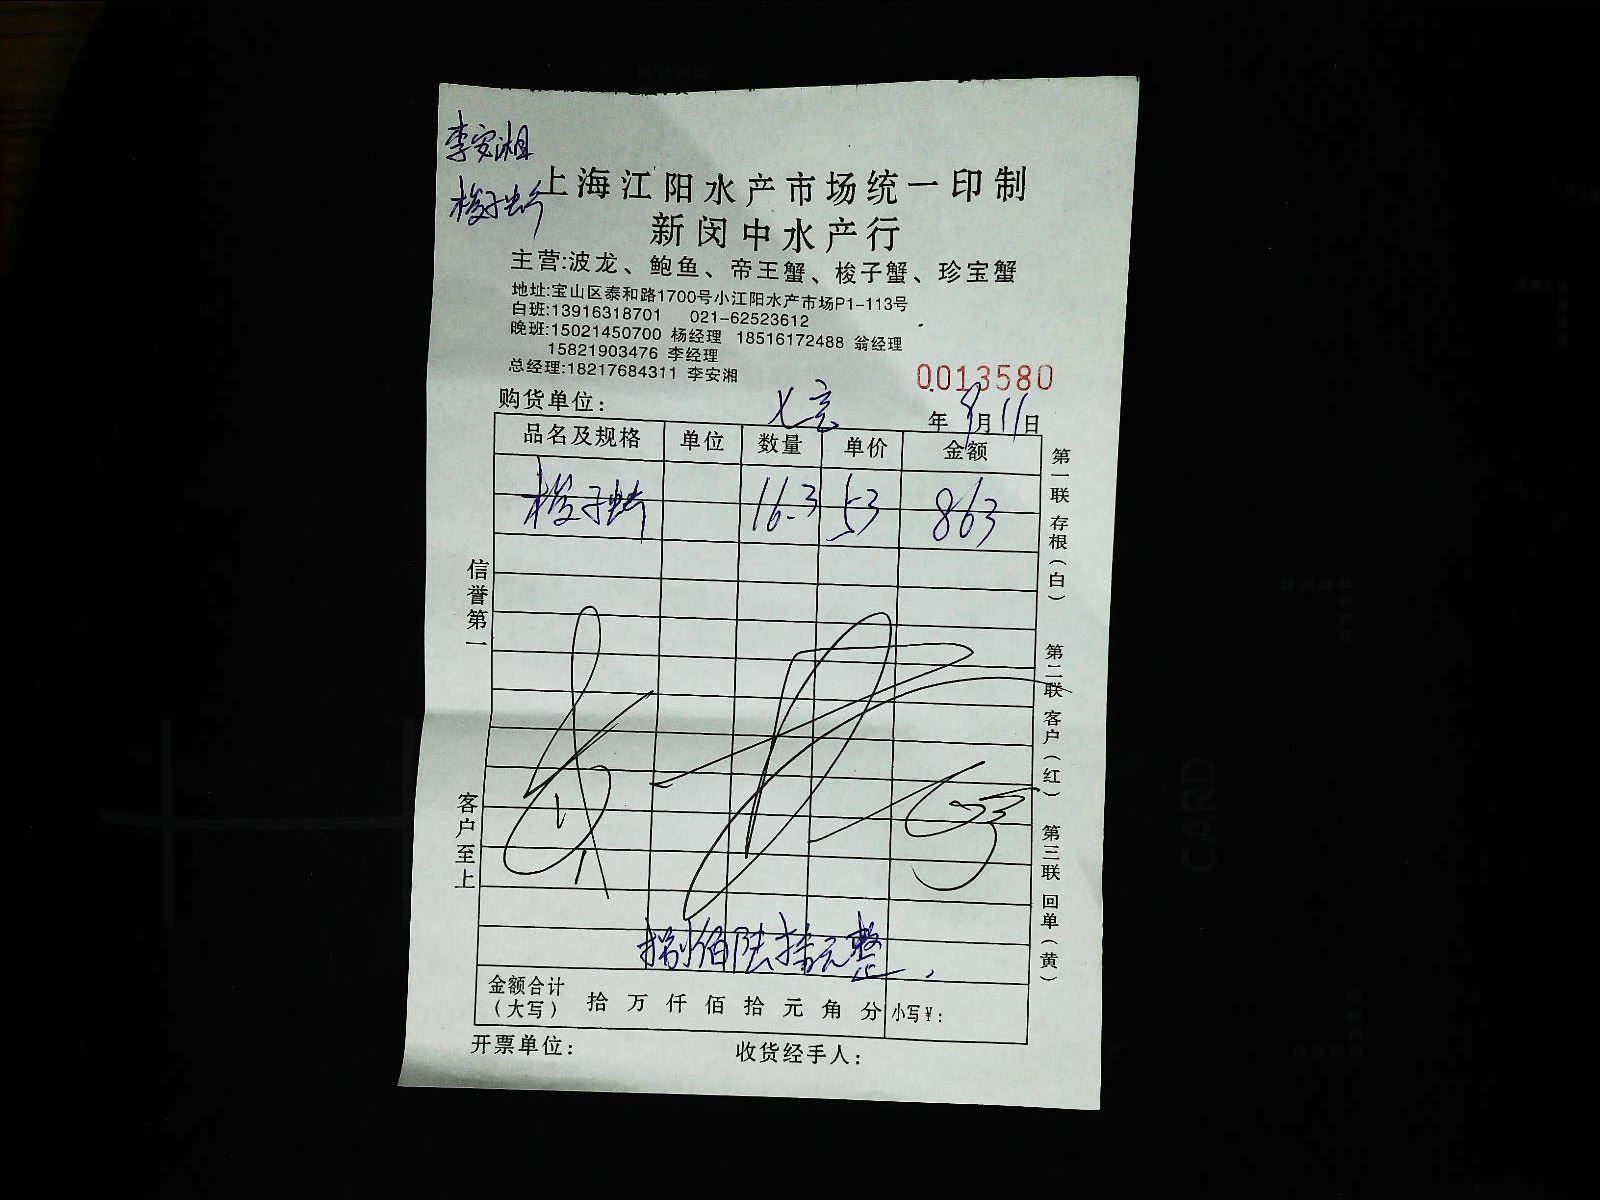 李安湘
梭子蟹
上海江阳水产市场统一印制
新闵中水产行
主营:波龙、鲍鱼、帝王蟹、梭子蟹、珍宝蟹
地址:宝山区泰和路1700号小江阳水产市场P1-113号
白班:13916318701 021-62523612
晚班:15021450700 杨经理 18516172488 翁经理
15821903476 李经理
总经理:18217684311 李安湘
0013580
购货单位: 年 9月11日
品名及规格 单位 数量 单价 金额
梭子蟹 16.3 53 863
捌佰陆拾元整
金额合计
(大写) 拾万仟佰拾元角分 小写¥:
开票单位: 收货经手人:
信誉第一 客户至上
第一联 存根(白) 第二联 客户(红) 第三联 回单(黄)
CARD